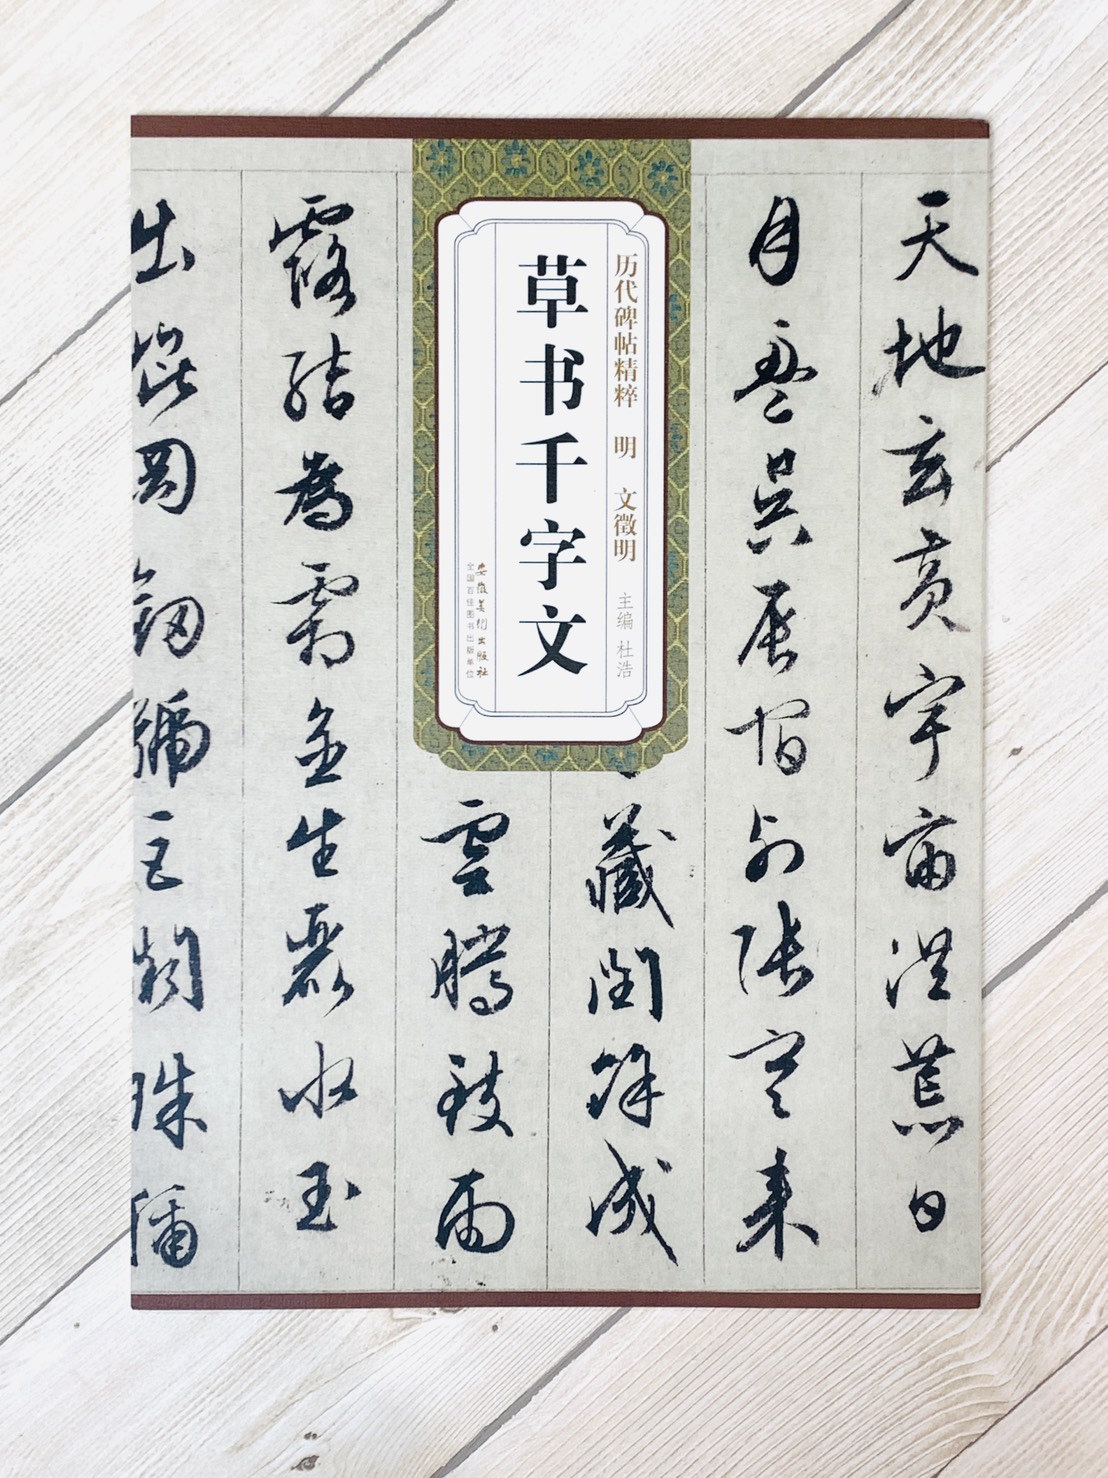 天地玄黄宇宙洪荒日
月盈昃辰宿列張寒来
历代碑帖精粹 明 文徵明 主编 杜浩
草书千字文
安徽美術出版社
全国百佳图书出版单位
藏閏餘成
雲騰致雨
露結為霜金生麗水玉
出崐岡劍號巨闕珠稱